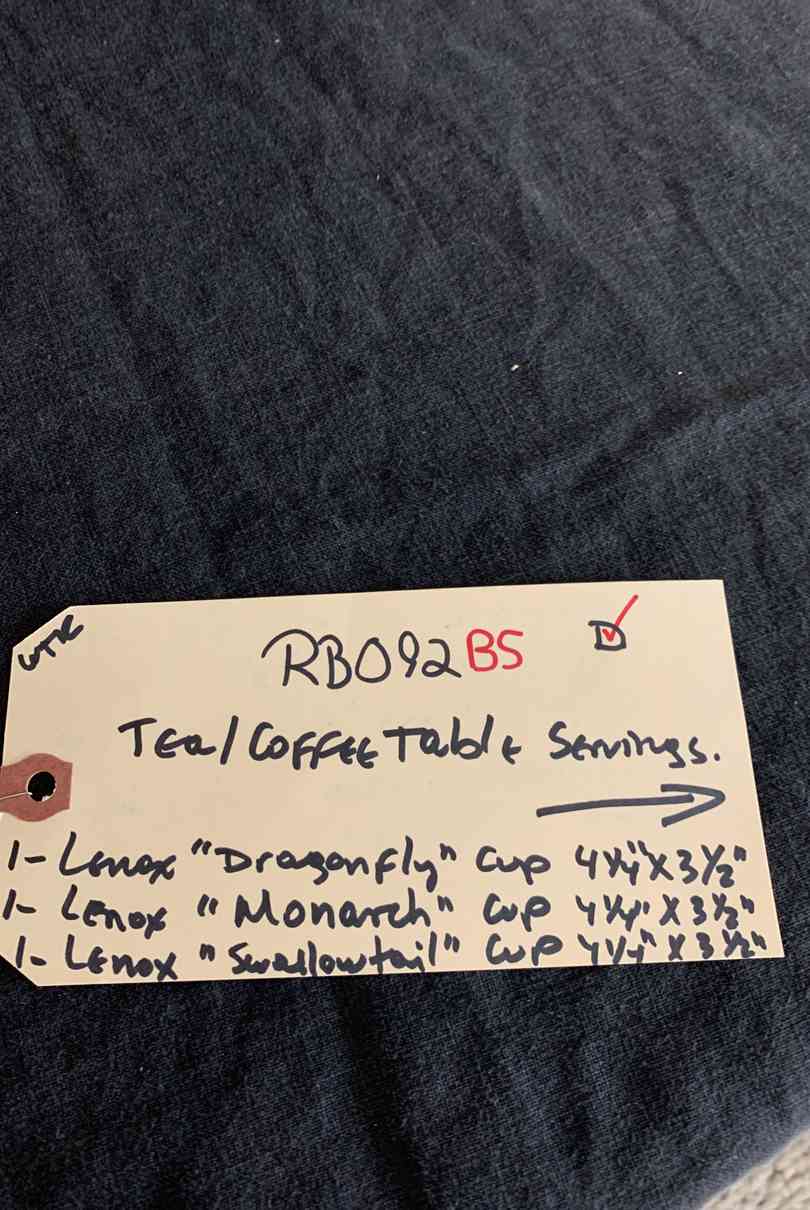 RB092BS
Tea/Coffee Table Servings.
1- Lenox "Dragonfly" Cup 4 1/4" X 3 1/2"
1- Lenox "Monarch" Cup 4 1/4" X 3 1/2"
1- Lenox "Swallowtail" Cup 4 1/4" X 3 1/2"